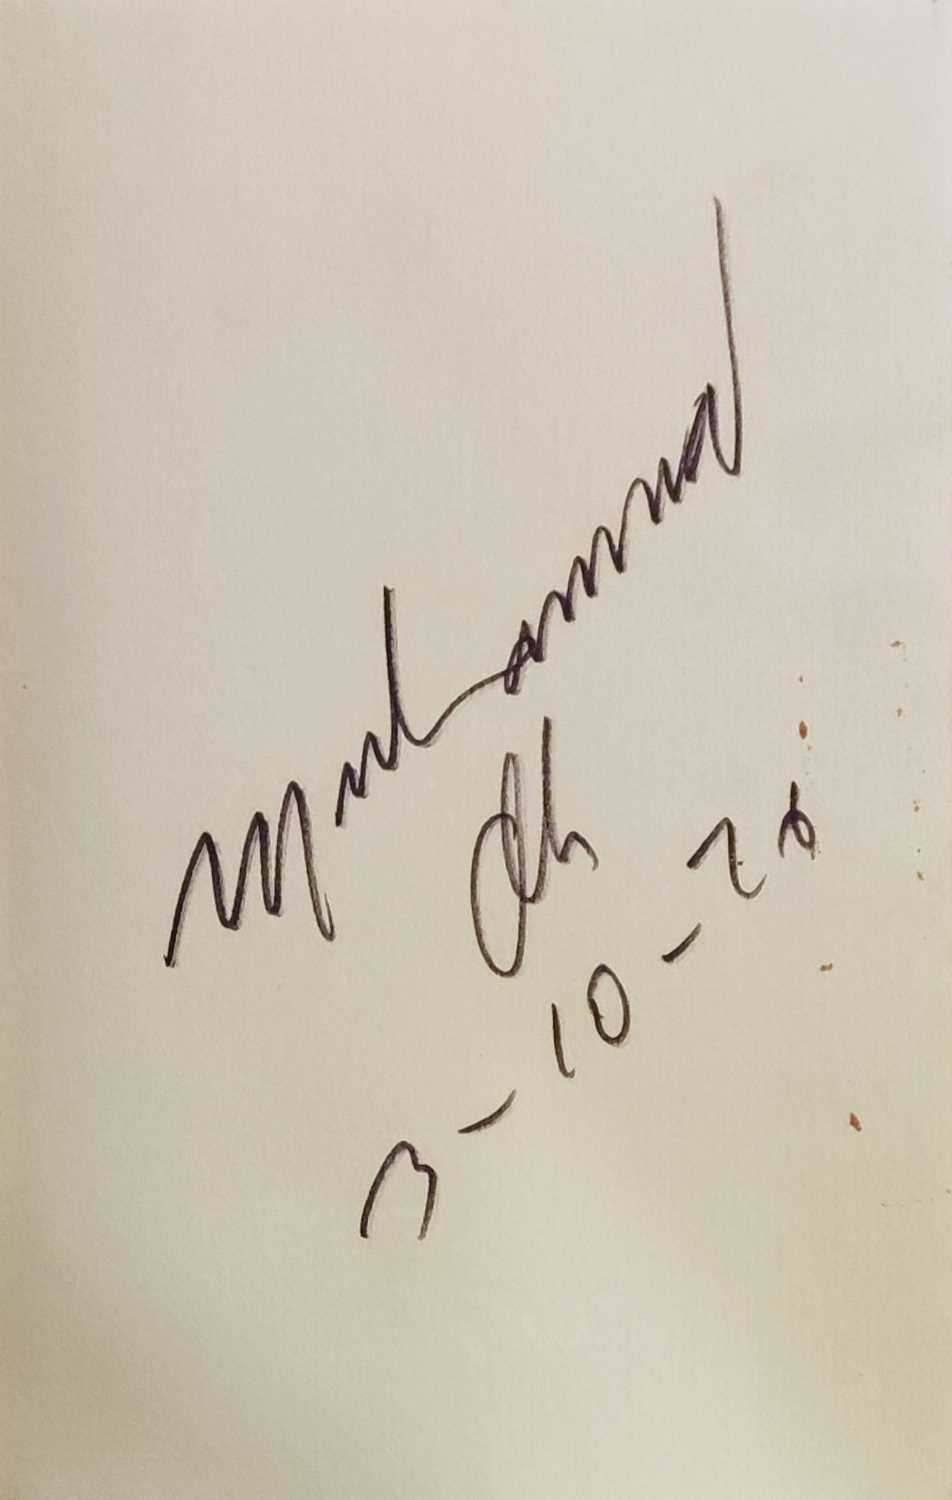 Muhammad
Ali
3-10-78